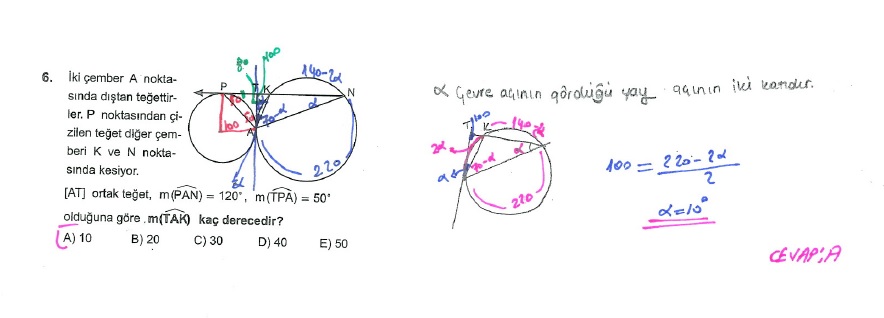 6. İki çember A nokta-
sında dıştan teğettir-
ler. P noktasından çi-
zilen teğet diğer çem-
beri K ve N nokta-
sında kesiyor.
[AT] ortak teğet, m(PAN) = 120°, m(TPA) = 50°
olduğuna göre, m(TAK) kaç derecedir?
A) 10 B) 20 C) 30 D) 40 E) 50
80 100
140-2α
P T K N
α
50
100
A
70-α
220
α Çevre açının gördüğü yay açının iki katıdır.
100
T K 140-2α
2α
α
70-α
α
220
100 = 220-2α
2
α=10°
CEVAP: A